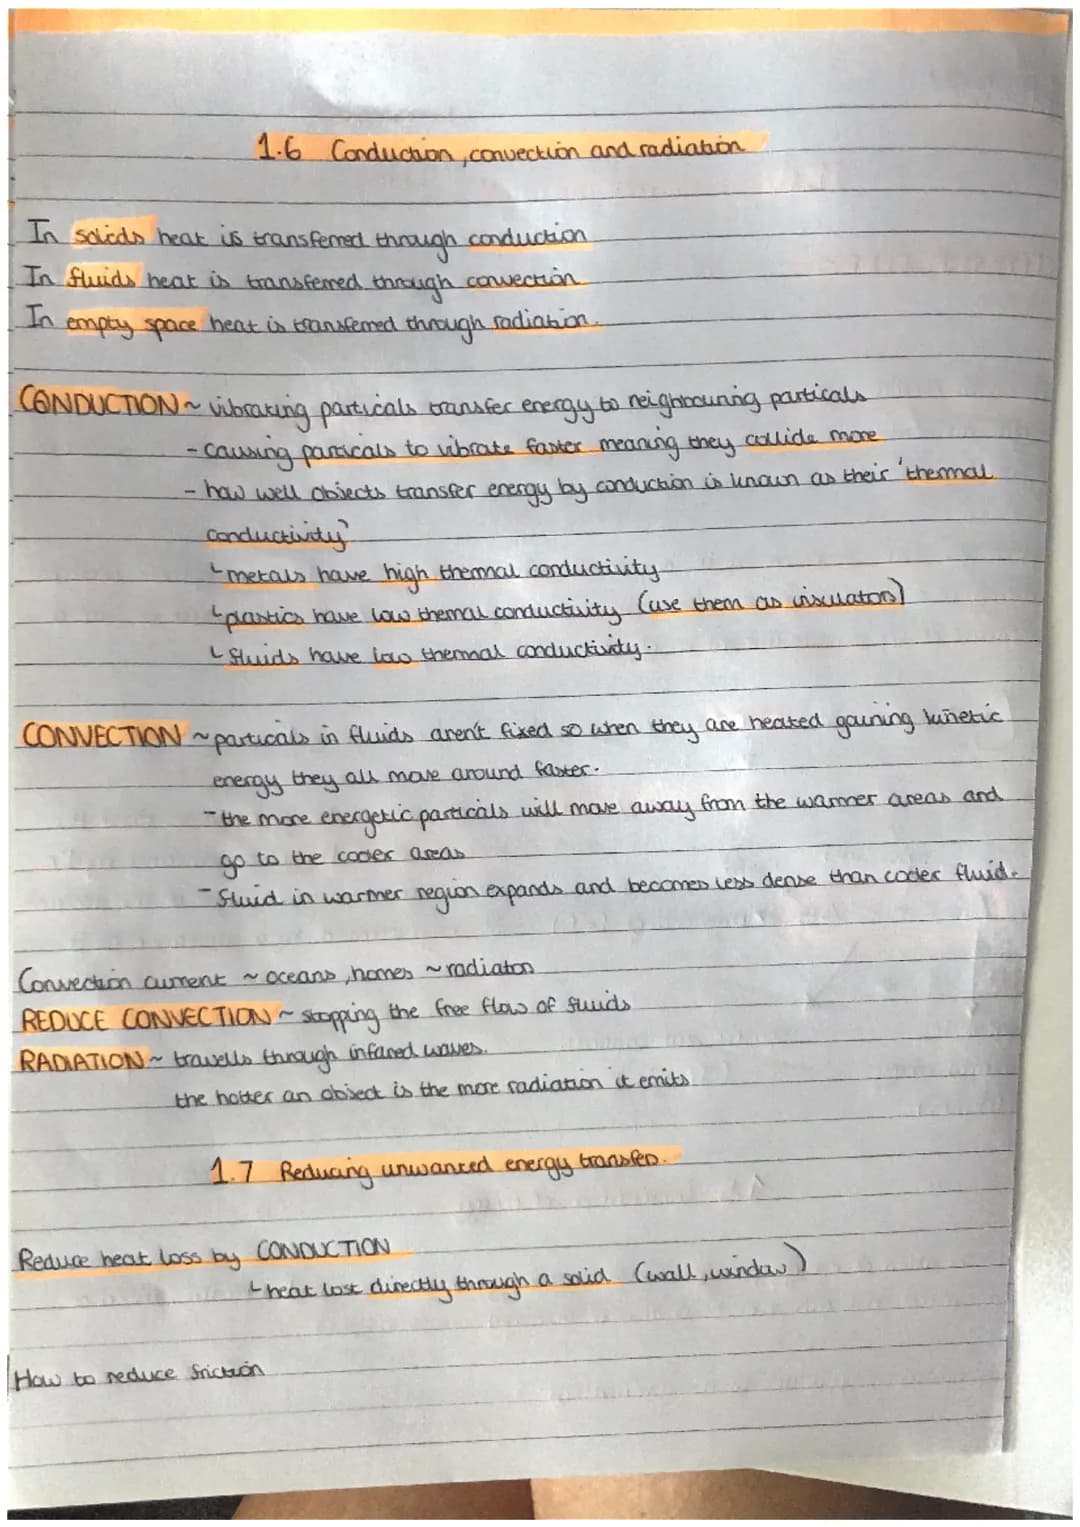 1.6 Conduction, convection and radiation
In solids heat is transferred through conduction
In fluids heat is transferred through convection
In empty space heat is transferred through radiation.
CONDUCTION ~ vibrating particals transfer energy to neighbouring particals
- causing particals to vibrate faster meaning they collide more
- how well objects transfer energy by conduction is known as their 'thermal
conductivity'
└ metals have high thermal conductivity
└ plastics have low thermal conductivity (use them as insulators)
└ fluids have low thermal conductivity.
CONVECTION ~ particals in fluids aren't fixed so when they are heated gaining kinetic
energy they all move around faster.
- the more energetic particals will move away from the warmer areas and
go to the cooler areas
- Fluid in warmer region expands and becomes less dense than cooler fluid.
Convection current ~ oceans, homes ~ radiators
REDUCE CONVECTION ~ stopping the free flow of fluids
RADIATION ~ travells through infared waves.
the hotter an object is the more radiation it emits
1.7 Reducing unwanted energy transfers.
Reduce heat loss by CONDUCTION
└ heat lost directly through a solid (wall, window)
How to reduce friction